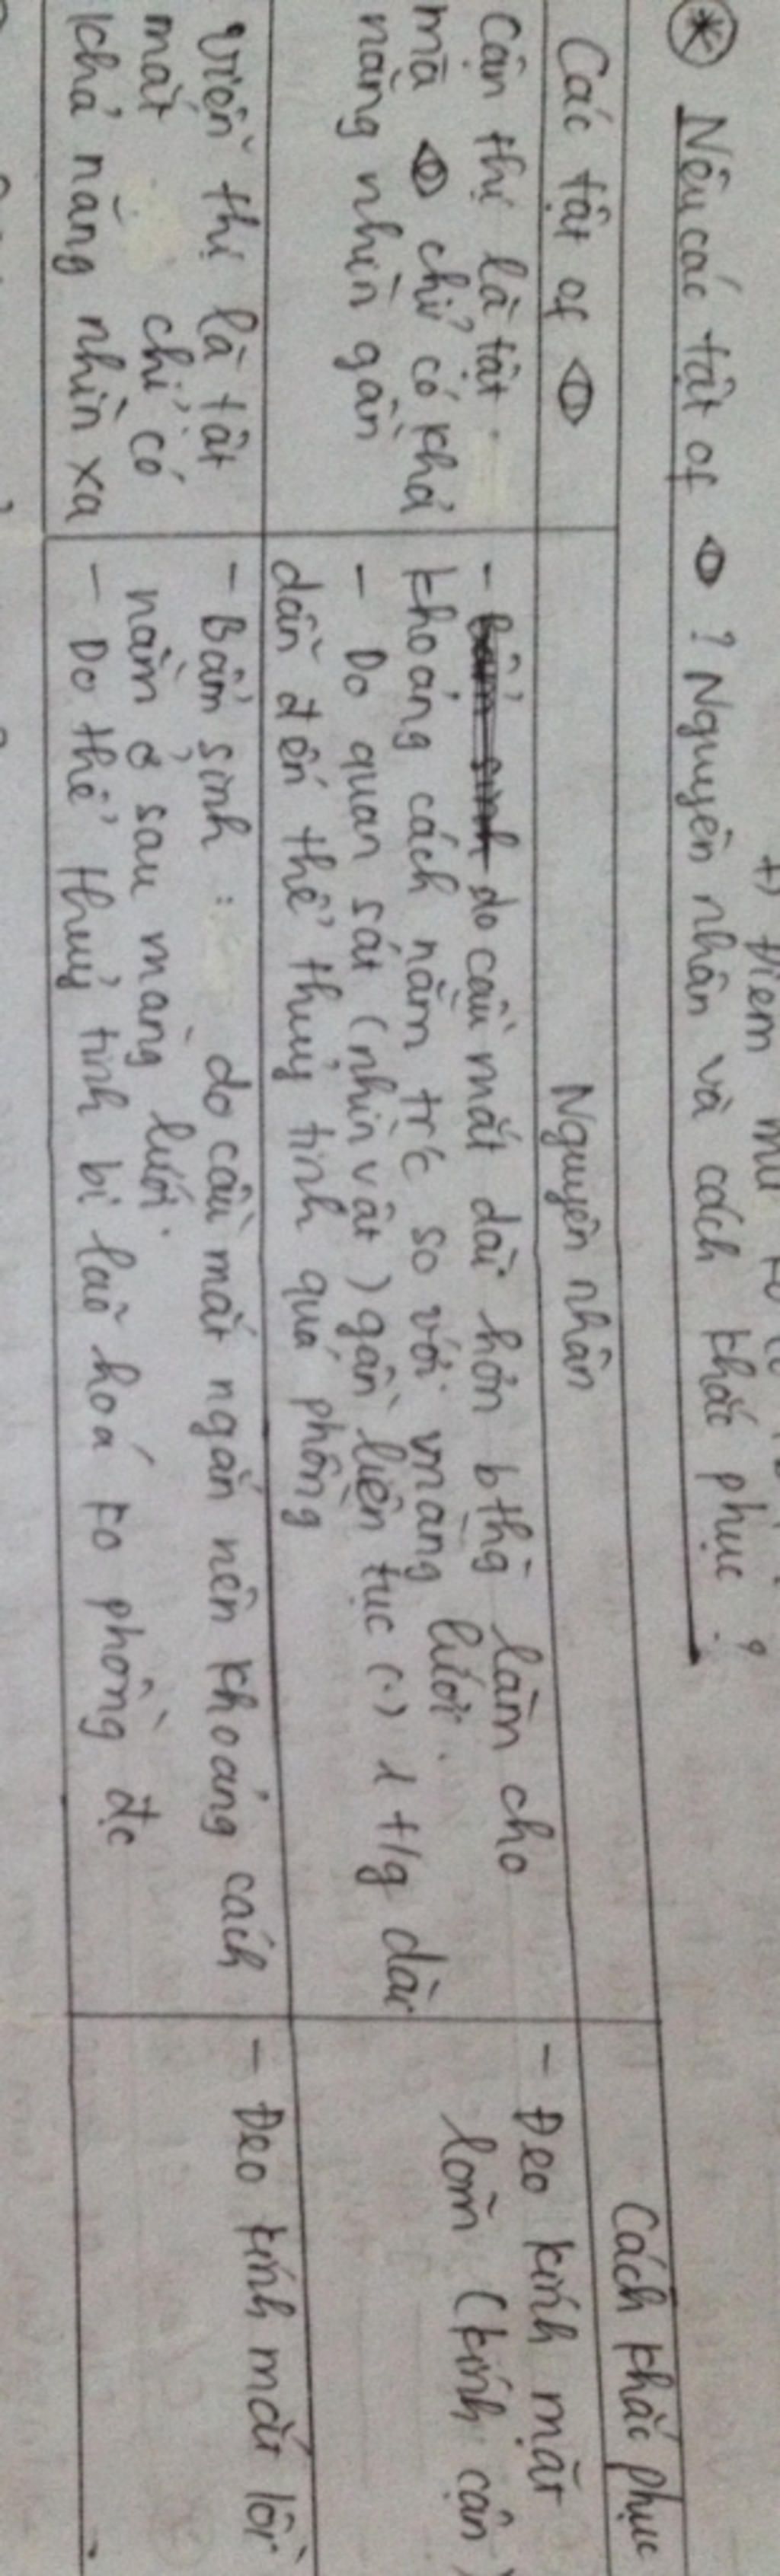 +) Điểm mù
* Nêu các tật of 👁 ? Nguyên nhân và cách khắc phục ?
Các tật of 👁
Nguyên nhân
Cách khắc phục
Cận thị là tật
mà 👁 chỉ có khả
năng nhìn gần
- do cầu mắt dài hơn bthg làm cho
khoảng cách nằm trc so với màng lưới.
- Do quan sát (nhìn vật) gần liên tục (.) 1 t/g dài
dẫn đến thể thuỷ tinh quá phồng
- Đeo kính mặt
lõm (kính cận)
Viễn thị là tật
mắt chỉ có
khả năng nhìn xa
- Bẩm sinh : do cầu mắt ngắn nên khoảng cách
nằm ở sau màng lưới.
- Do thể thuỷ tinh bị lão hoá ko phồng đc
- Đeo kính mắt lồi